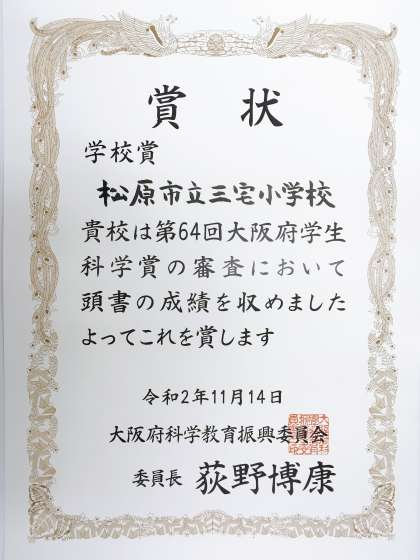 賞状
学校賞
松原市立三宅小学校
貴校は第64回大阪府学生
科学賞の審査において
頭書の成績を収めました
よってこれを賞します
令和2年11月14日
大阪府科学教育振興委員会
委員長 荻野博康